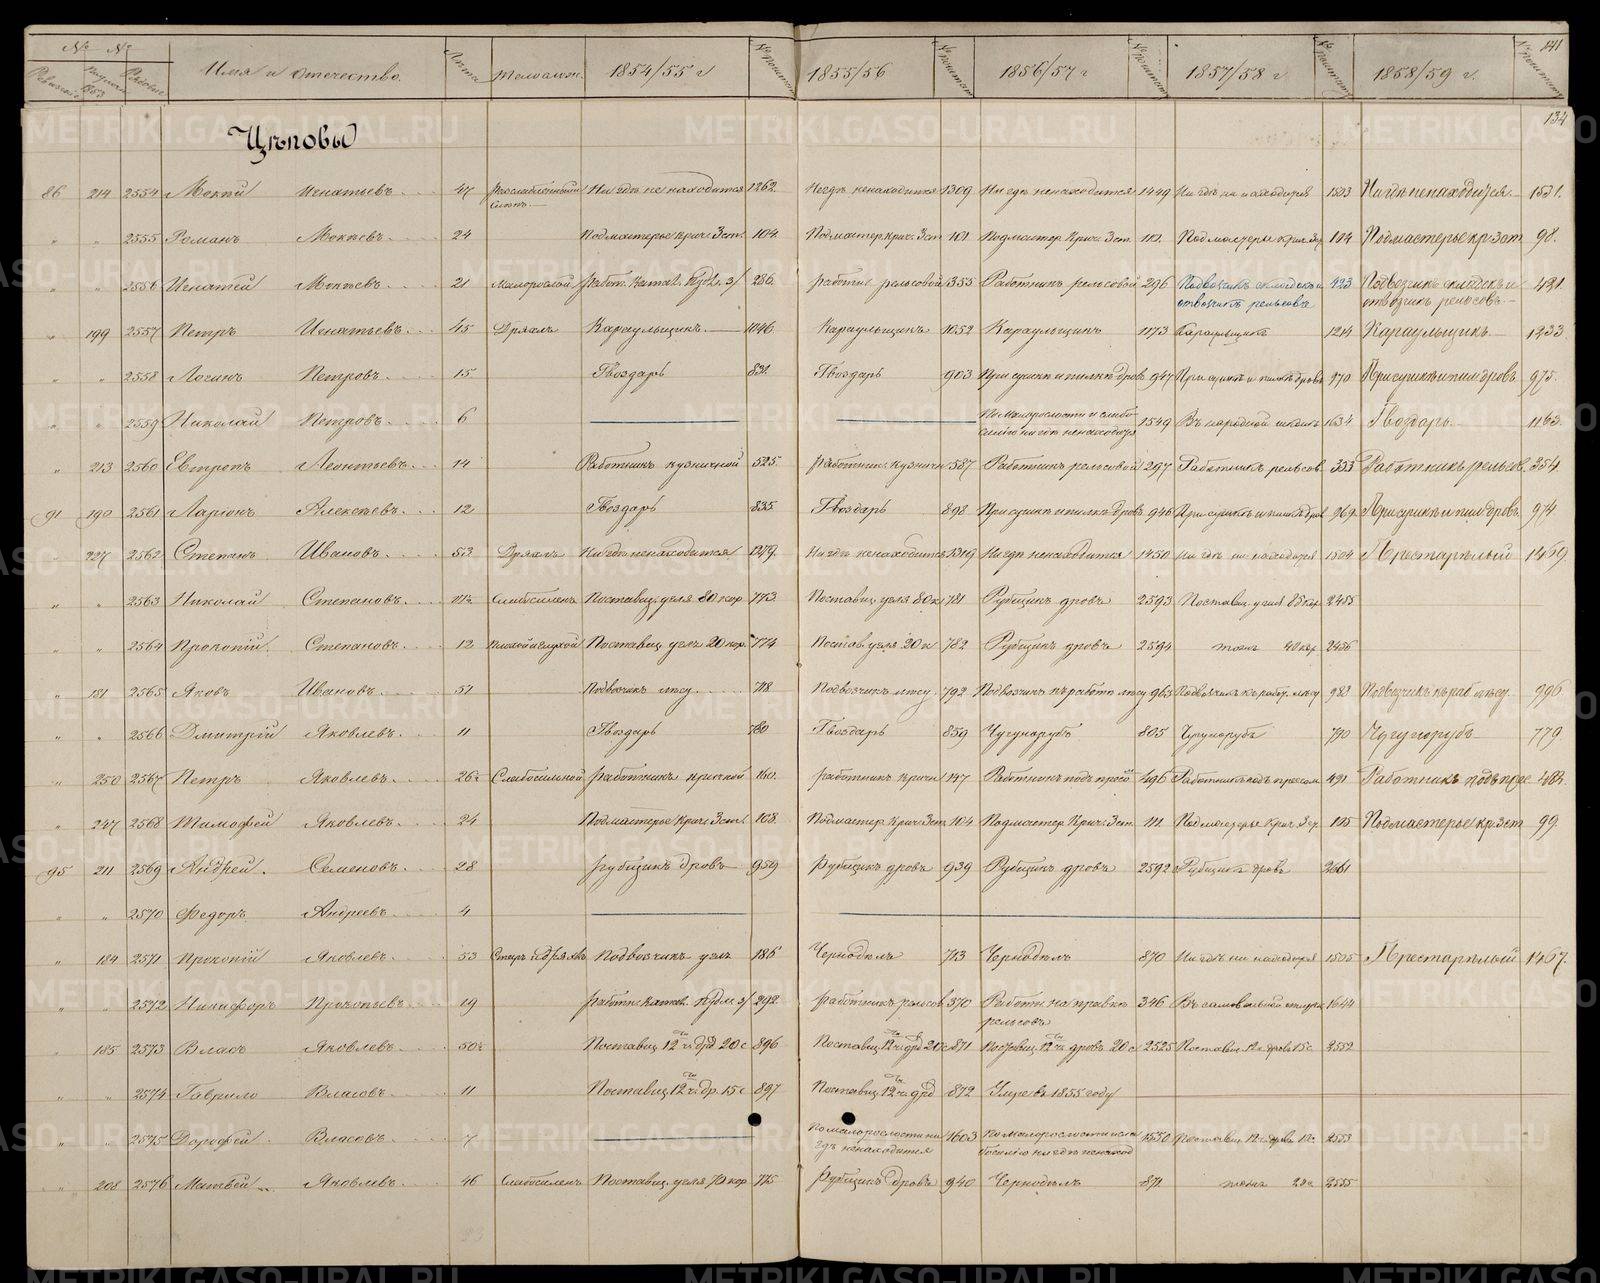 № № Имя и отчество. Лета Телослож. 1854/55 г 1855/56 1856/57 г 1857/58 г 1858/59 г. 141
134
Цѣповы
86 214 2554 Мокей Игнатьевъ 47 Разслабленный Ни гдѣ не находится 1262. Нигдѣ ненаходится 1309 Ни гдѣ ненаходится 1449 Ни гдѣ не находится 1503 Ни гдѣ ненаходится. 1531.
" " 2555 Романъ Мокѣевъ 24 Подмастерье крич. 3 ст. 104. Подмастер. крич. 3 ст 101 Подмастер. Крич. 3 ст. 112. Подмастерье крич. 3 ст 104 Подмастерье кр. 3 ст 98.
" " 2556 Игнатей Мокѣевъ 21 Малорослой 286. работн. рельсовой 355 Работникъ рельсовой 296 Подвозчикъ 423 Подвозчикъ 421.
отвозчикъ рельсовъ отвозчикъ рельсовъ
" 199 2557 Петръ Игнатьевъ 45 Дряхлъ Караульщикъ. 1046. Караульщикъ 1052 Караульщикъ 1173 Караульщикъ 1214 Караульщикъ 1233
" " 2558 Логинъ Петровъ 15 Гвоздарь 831. Гвоздарь 903 При сушкѣ и пилкѣ дровъ 947 При сушкѣ и пилкѣ дровъ 970 При сушкѣ и пил. дровъ 975.
" " 2559 Николай Петровъ 6 По малорослости и слабосилію ни гдѣ ненаходится 1549 Въ народной школѣ 1634 Гвоздарь 1163.
" 213 2560 Евтропъ Леонтьевъ 14 Работникъ кузничной 525. работник. кузнич 587 Работникъ рельсовой 297 Работникъ рельсов. 353 Работникъ рельсов. 354.
91 190 2561 Ларіонъ Алексѣевъ 12 Гвоздарь 835. Гвоздарь 898 При сушкѣ и пилкѣ дровъ 946 При сушкѣ и пилкѣ дров 969 При сушкѣ и пил. дровъ 974.
" 227 2562 Степанъ Ивановъ 53 Дряхлъ Ни гдѣ ненаходится 1279. Ни гдѣ ненаходится 1319 Ни гдѣ ненаходится 1450 Ни гдѣ не находится 1504 Престарѣлый 1469.
" " 2563 Николай Степановъ Слабосиленъ Поставщ. угля 80 кор. 773. Поставщ. угля 80 к 781 Рубщикъ дровъ 2593 Поставщ. угля 80 кор. 2455
" " 2564 Прокопій Степановъ 12 Поставщ. угля 20 кор. 774 Постав. угля 20 к 782 Рубщикъ дровъ 2594 тожъ 40 кор. 2456
" 181 2565 Яковъ Ивановъ 51 Подвозчикъ лѣсу 718 Подвозчикъ лѣсу 792 Подвозчикъ къ работѣ лѣсу 963 Подвозчикъ къ работ. лѣсу 983 Подвозчикъ къ раб. лѣсу 996
" " 2566 Дмитрій Яковлевъ 11 Гвоздарь 780 Гвоздарь 859 Чугунорубъ 805 Чугунорубъ 790 Чугунорубъ 779
" 250 2567 Петръ Яковлевъ 26½ Слабосильной работникъ кричной 160. работникъ кричн 147 Работникъ подъ пресо 496 Работникъ подъ прессом 491 Работникъ подъ прес 483.
" 247 2568 Тимофей Яковлевъ 24 Подмастерье Крич. 3 ст. 108. Подмастер. Крич. 3 ст 104 Подмастер. Крич. 3 ст. 111. Подмастерье Крич. 3 ст 105 Подмастерье кр. 3 ст 99.
95 211 2569 Андрей Семеновъ 28 рубщикъ дровъ 959 Рубщикъ дровъ 939 Рубщикъ дровъ 2592 Рубщикъ дровъ 2661
" " 2570 Федоръ Андреевъ 4
" 184 2571 Прокопій Яковлевъ 53 Старъ и дряхлъ Подвозчикъ угля 186 Чернодѣлъ 713 Чернодѣлъ 870 Ни гдѣ не находится 1505 Престарѣлый 1467.
" " 2572 Никифоръ Прокопьевъ 19 292. работникъ рельсов 370 Работн. на правкѣ 346 1644
рельсовъ
" 185 2573 Власъ Яковлевъ 50½ Поставщ. 12 ч. др. 20 с 896 Поставщ. 12 ч. др. 20 с 871 Поставщ. 12 ч. дровъ 20 с 2525 Поставщ. 12 ч. дровъ 15 с 2552
" " 2574 Гаврило Власовъ 11 Поставщ. 12 ч. др. 15 с 897 Поставщ. 12 ч. др 872 Умре въ 1855 году
" " 2575 Дорофей Власовъ 7 По малорослости ни 1603 По малорослости и сла 1550 Поставщ. 12 ч. дровъ 10 с. 2553
гдѣ ненаходится босилію ни гдѣ ненаход
" 208 2576 Матвей Яковлевъ 46 Слабосиленъ Поставщ. угля 70 кор 775 Рубщикъ дровъ 940 Чернодѣлъ 871. тожъ 2555
METRIKI.GASO-URAL.RU